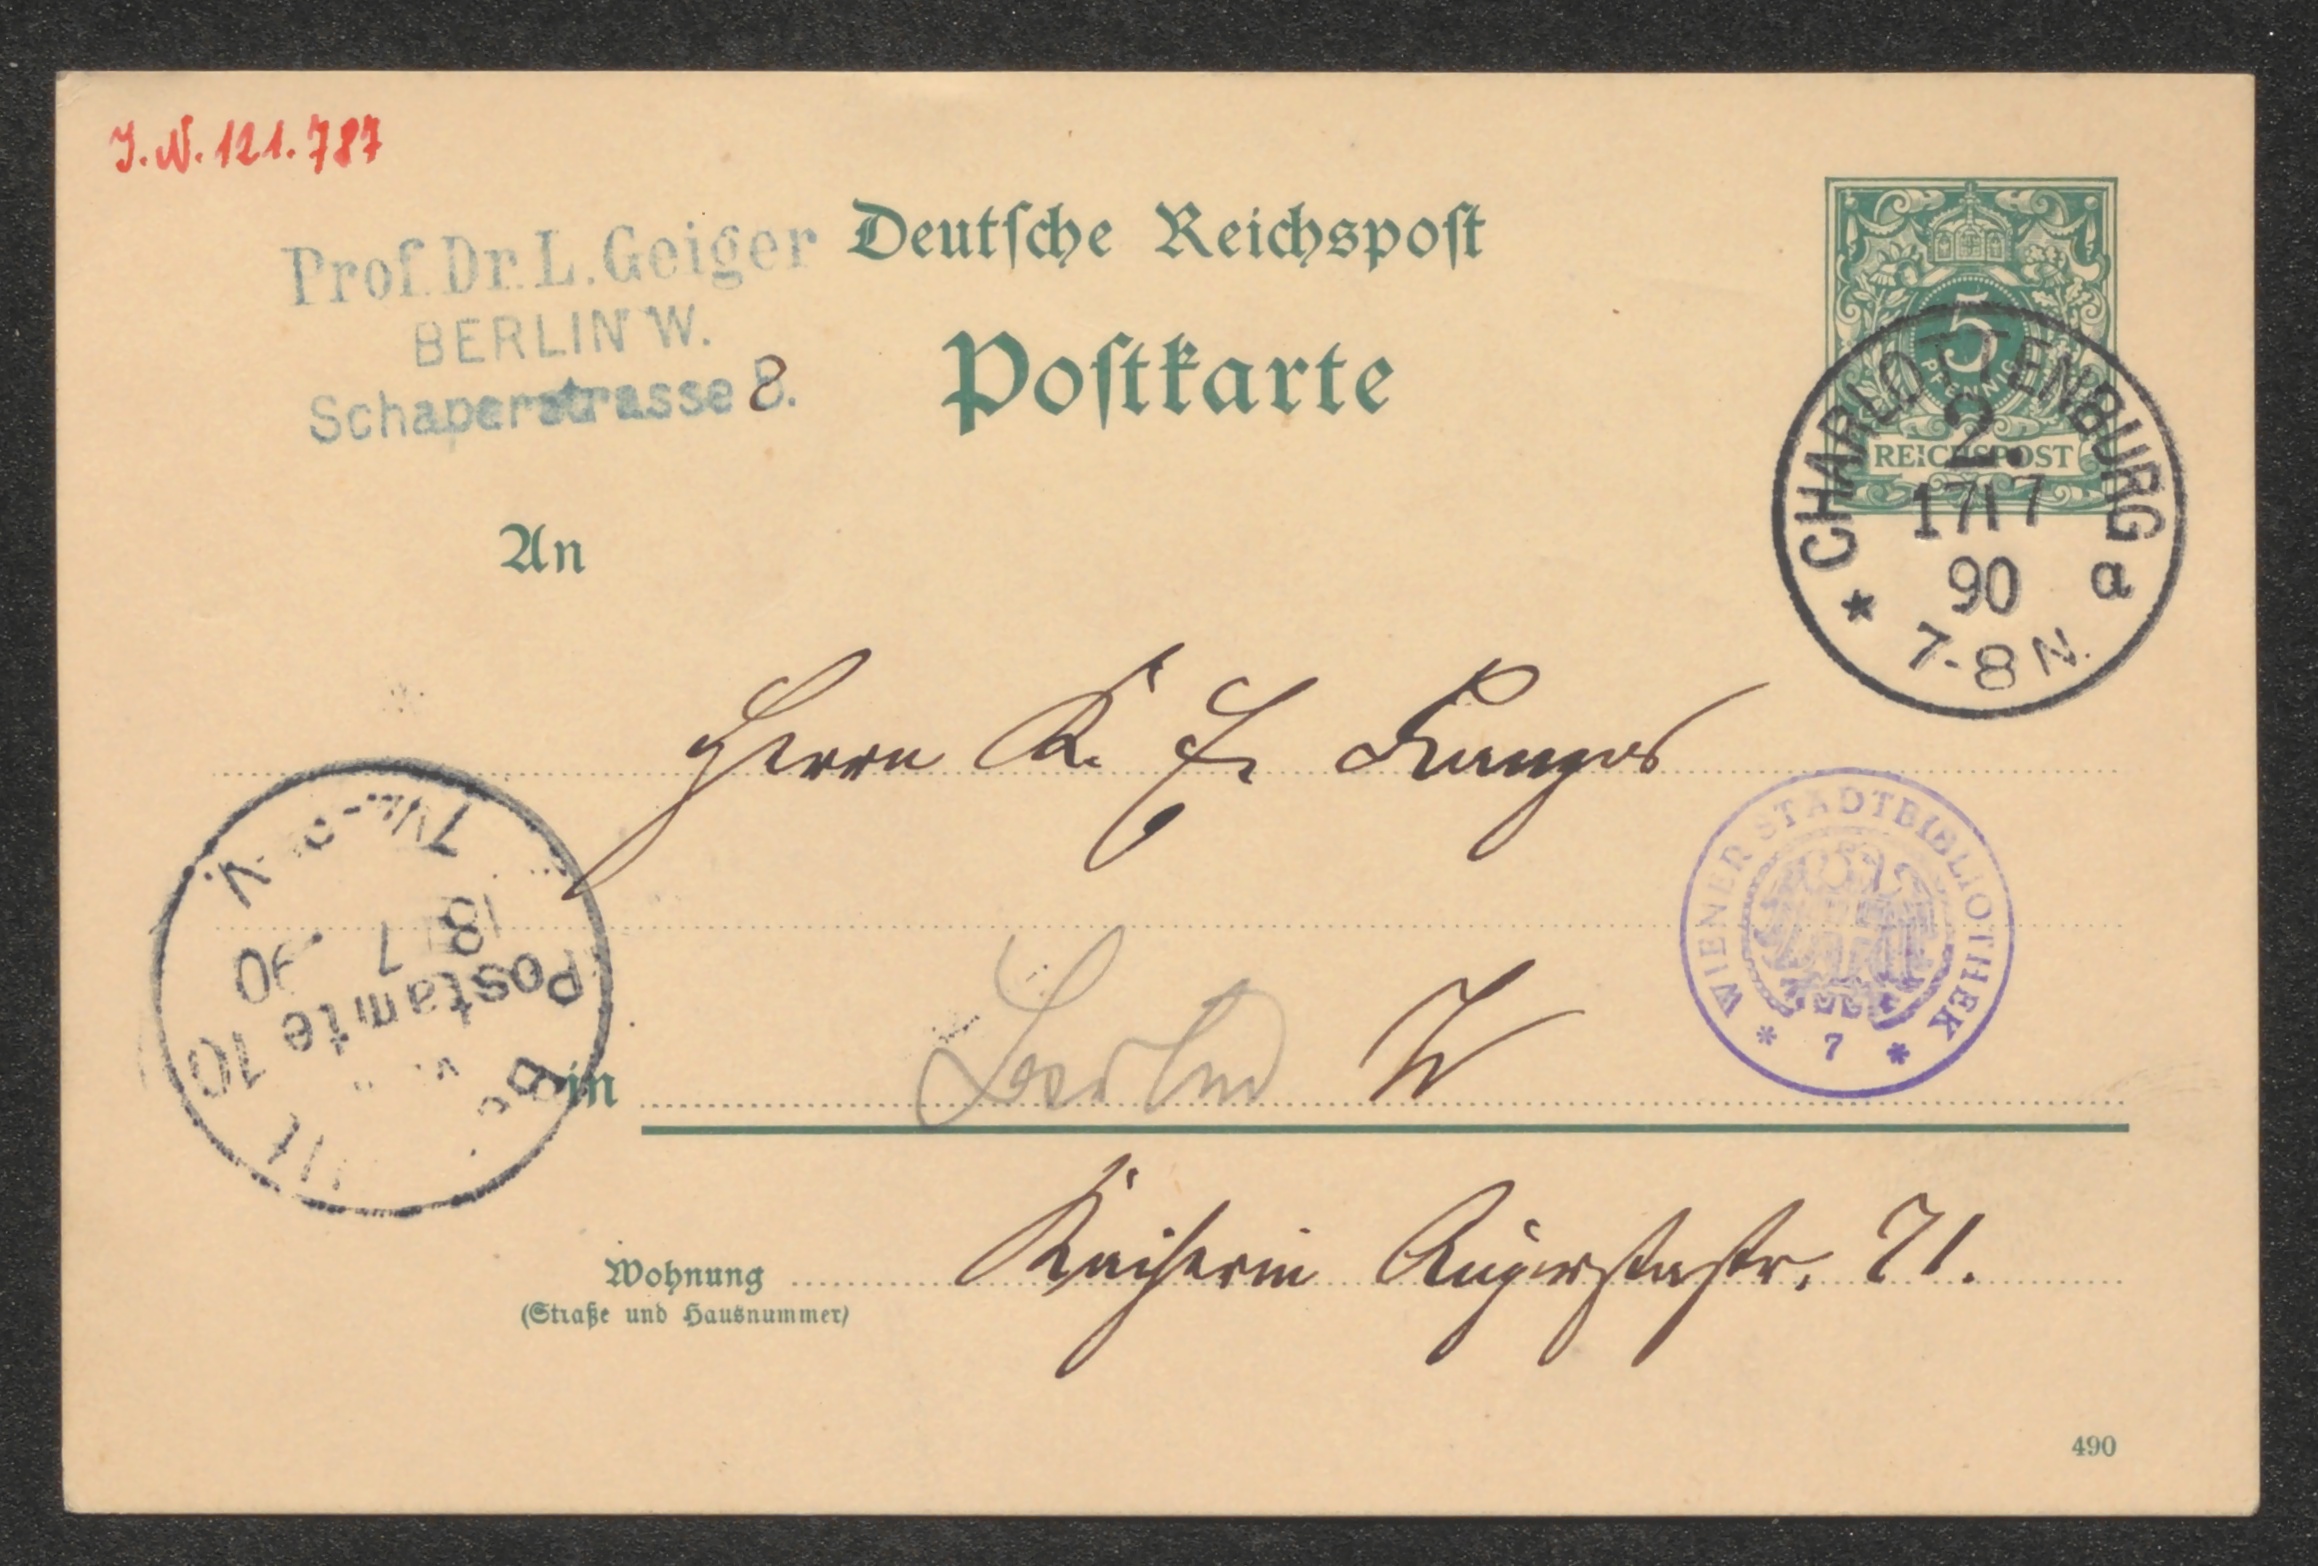 J. N. 121.787
Prof. Dr. L. Geiger
BERLIN W.
Schaperstrasse 8.
Deutsche Reichspost
Postkarte
5
PFENNIG
REICHSPOST
CHARLOTTENBURG
2.
17/7
90
* a
7-8 N.
An
Herrn K. E. Franzos
WIENER STADTBIBLIOTHEK
* 7 *
18 7 90
Postamte 10
in Berlin W
Kaiserin Augustastr. 71.
Wohnung
(Straße und Hausnummer)
490